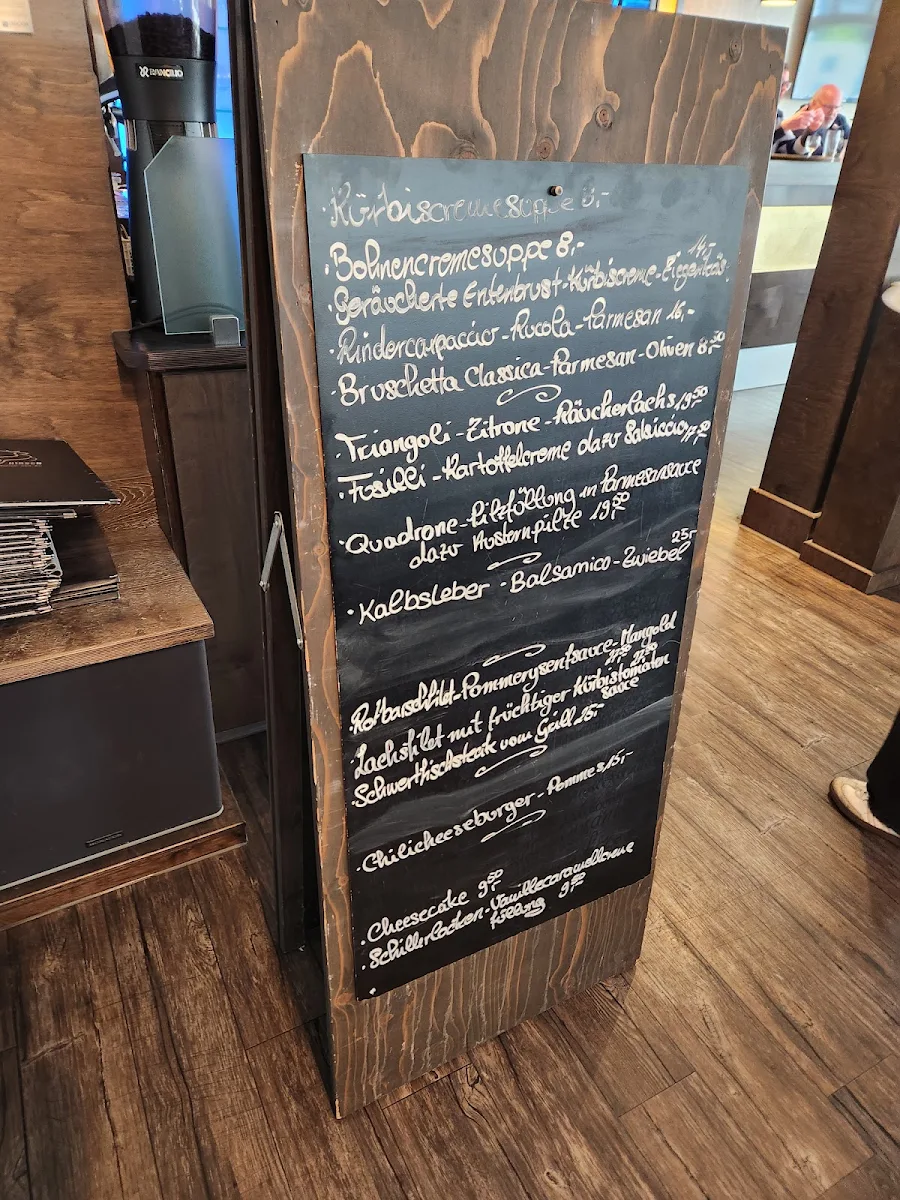 RANCILIO
·Kürbiscremesuppe 8,-
·Bohnencremesuppe 8,-
14,-
·Geräucherte Entenbrust-Kürbiscreme-Ziegenkäs
·Rindercarpaccio-Rucola-Parmesan 16,-
·Bruschetta Classica-Parmesan-Oliven 8,50
·Triangoli-Zitrone-Räucherlachs 19,50
·Fusilli-Kartoffelcreme dazu Salsiccia 17,50
·Quadrone-Pilzfüllung in Parmesansauce
dazu Austernpilze 19,50
25,-
·Kalbsleber-Balsamico-Zwiebel
·Rotbarschfilet-Pommerysenfsauce-Mangold
·Lachsfilet mit früchtiger Kürbistomaten
sauce
·Schwertfischsteak vom Grill 25,-
·Chilicheeseburger-Pommes 15,-
·Cheesecake 9,50
·Schillerlocken-Vanillecaramellcreme
füllung 9,50